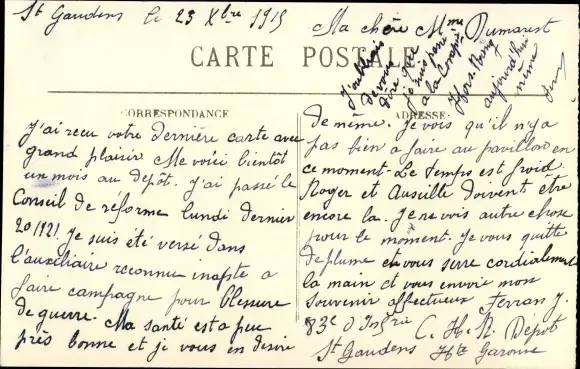 St Gaudens le 23 Xbre 1915
Ma chère Mme Dumarest
CARTE POSTALE
J'oubliais
de vous
dire que
je suis
a la Compie
Hors Rang
aujourd'hui
même
CORRESPONDANCE
J'ai recu votre dernière carte avec
grand plaisir Me voici bientôt
un mois au depôt. J'ai passé le
Conseil de réforme lundi dernier
20/12/ je suis été versé dans
l'auxiliaire reconnu inapte a
faire campagne pour blessure
de guerre. Ma santé est a peu
près bonne et je vous en desire
ADRESSE
de même. Je vois qu'il n'y a
pas bien a faire au pavillon en
ce moment. Le temps est froid
Roger et doivent être
encore la. Je ne vois autre chose
pour le moment. Je vous quitte
de plume et vous serre cordialement
la main et vous envoie mon
souvenir affectueux Ferran J.
83e d'Infrie C. H. R. Dépot
St Gaudens Hte Garonne